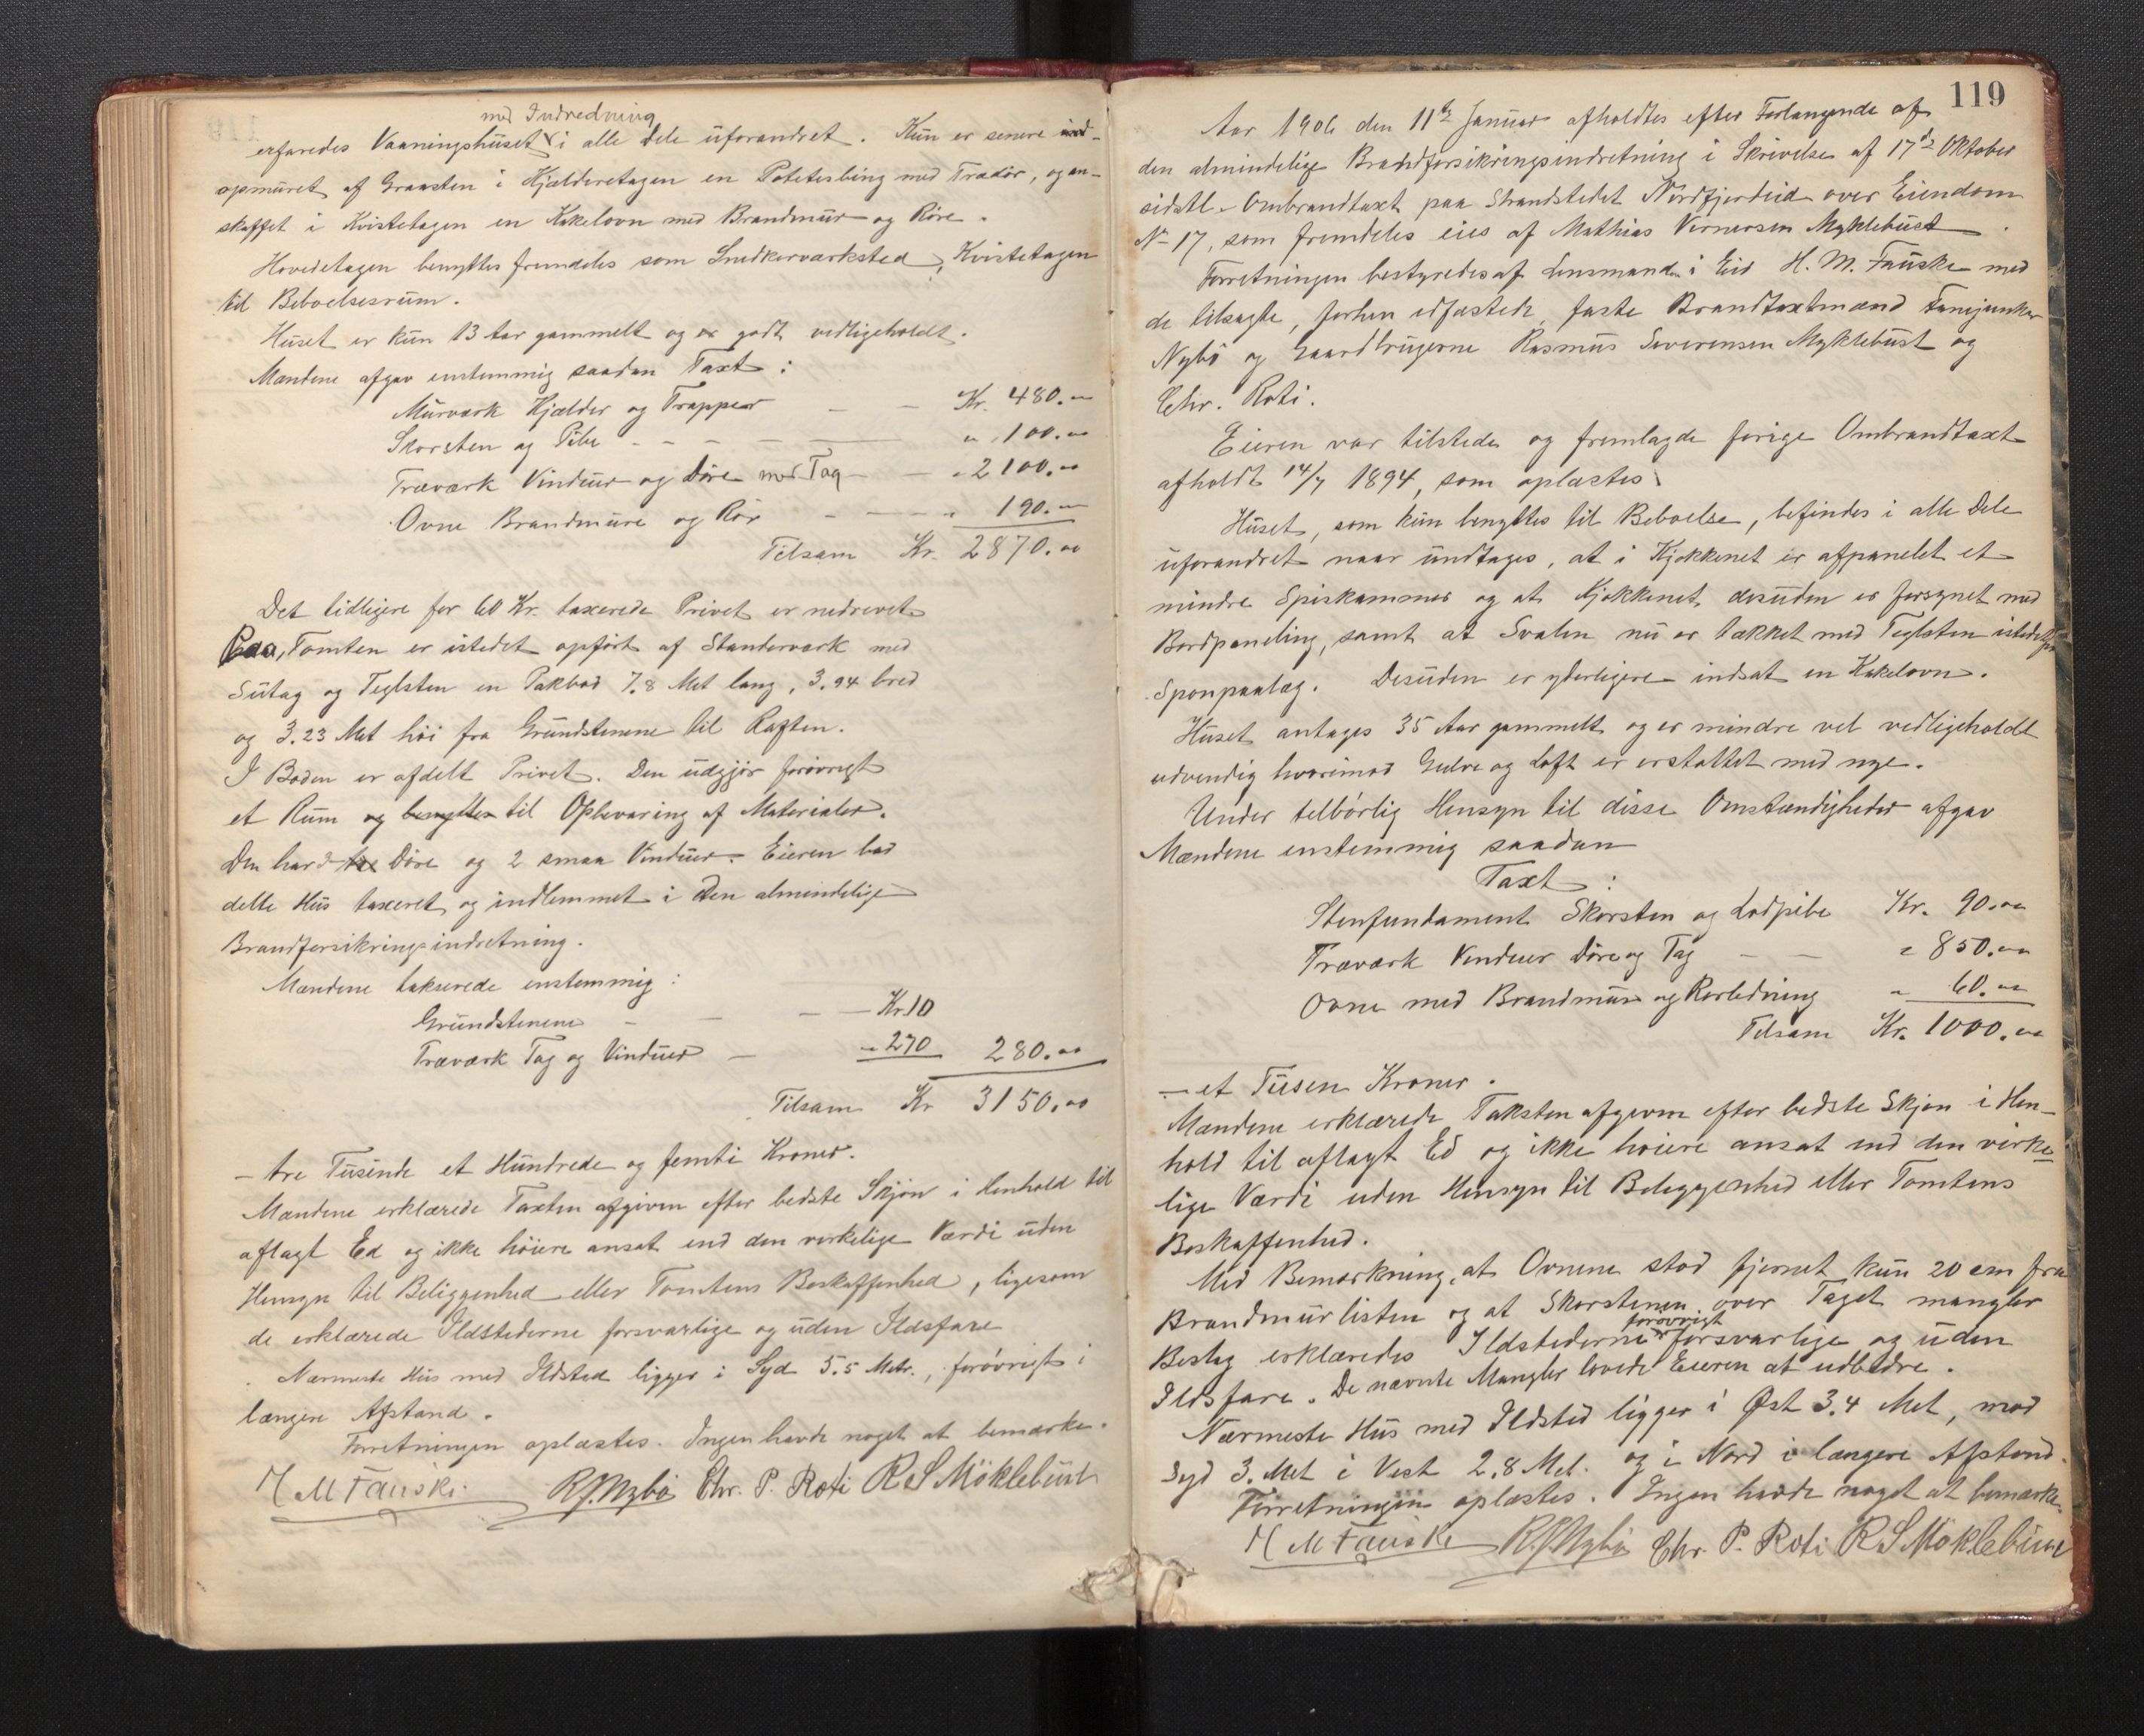 med Indredning
erfaredes Vaaningshuset i alle Dele uforandret. Kun er senere ind-
opmuret af Graasten i Kjælderetagen en Potetesbing med Trædør, og an-
skaffet i Kvistetagen en Kakelovn med Brandmur og Røre.
Hovedetagen benyttes fremdeles som Snedkerværksted, Kvistetagen
til Beboelsesrum.
Huset er kun 13 Aar gammelt og er godt vedligeholdt.
Mændene afgav enstemmig saadan Taxt:
Murværk Kjælder og Trapper - - Kr. 480.00
Skorsten og Pibe - - - - " 100.00
Træværk Vinduer og Døre med Tag - - " 2100.00
Ovne Brandmure og Rør - - - " 190.00
Tilsam Kr. 2870.00
Det tidligere for 60 Kr. taxerede Privet er nedrevet.
Paa Tomten er istedet opført af Standerværk med
Sutag og Teglsten en Pakbod 7.8 Met lang, 3.94 bred
og 3.23 Met høi fra Grundstenene til Raften.
I Boden er afdelt Privet. Den udgjør forøvrigt
et Rum og benyttes til Opbevaring af Materialer.
Den har 3 Døre og 2 smaa Vinduer. Eieren bad
dette Hus taxeret og indlemmet i Den almindelige
Brandforsikringsindretning.
Mændene takserede enstemmig:
Grundstenene - - - Kr. 10
Træværk Tag og Vinduer - " 270 280.00
Tilsam Kr 3150.00
- tre Tusinde et Hundrede og femti Kroner.
Mændene erklærede Taxten afgiven efter bedste Skjøn i Henhold til
aflagt Ed og ikke høiere ansat end den virkelige Værdi uden
Hensyn til Beliggenhed eller Tomtens Beskaffenhed, ligesom
de erklærede Ildstederne forsvarlige og uden Ildsfare
Nærmeste Hus med Ildsted ligger i Syd 5.5 Metr., forøvrigt i
længere Afstand.
Forretningen oplæstes. Ingen havde noget at bemærke.
H M Fauske. R.J.Nybø Chr. P. Roti R S Möklebust
119
Aar 1906 den 11te Januar afholdtes efter Forlangende af
den almindelige Brandforsikringsindretning i Skrivelse af 17de Oktober
sidstl. Ombrandtaxt paa Strandstedet Nordfjordeid over Eiendom
No 17, som fremdeles eies af Mathias Vernersen Myklebust.
Forretningen bestyredes af Lensmand i Eid H. M. Fauske med
de tilsagte, forhen edfæstede, faste Brandtaxtmænd Fanejunker
Nybø og Gaardbrugerne Rasmus Severensen Myklebust og
Chr. Roti.
Eieren var tilstede og fremlagde forrige Ombrandtaxt
afholdt 14/7 1894, som oplæstes.
Huset, som kun benyttes til Beboelse, befindes i alle Dele
uforandret naar undtages, at i Kjøkkenet er afpanelet et
mindre Spiskammer og at Kjøkkenet desuden er forsynet med
Bordpaneling, samt at Svalen nu er tækket med Teglsten istedetfor
Sponpaalæg. Desuden er yderligere indsat en Kakelovn.
Huset antages 35 Aar gammelt og er mindre vel vedligeholdt
udvendig hvorimod Gulve og Loft er erstattet med nye.
Under tilbørlig Hensyn til disse Omstændigheder afgav
Mændene enstemmig saadan
Taxt:
Stenfundament Skorsten og Lodpibe Kr. 90.00
Træværk Vinduer Døre og Tag - - " 850.00
Ovne med Brandmur og Rørledning " 60.00
Tilsam Kr. 1000.00
- et Tusen Kroner.
Mændene erklærede Taksten afgiven efter bedste Skjøn i Hen-
hold til aflagt Ed og ikke høiere ansat end den virke-
lige Værdi uden Hensyn til Beliggenhed eller Tomtens
Beskaffenhed.
Med Bemærkning, at Ovnene stod fjernet kun 20 cm fra
Brandmurlisten og at Skorstenen over Taget mangler
forøvrigt
Beslag erklæredes Ildstederne forsvarlige og uden
Ildsfare. De nævnte Mangler lovede Eieren at udbedre.
Nærmeste Hus med Ildsted ligger i Øst 3.4 Met, mod
Syd 3. Met i Vest 2.8 Met. og i Nord i længere Afstand.
Forretningen oplæstes. Ingen havde noget at bemærke.
H M Fauske R.J.Nybø Chr. P. Roti R S Möklebust